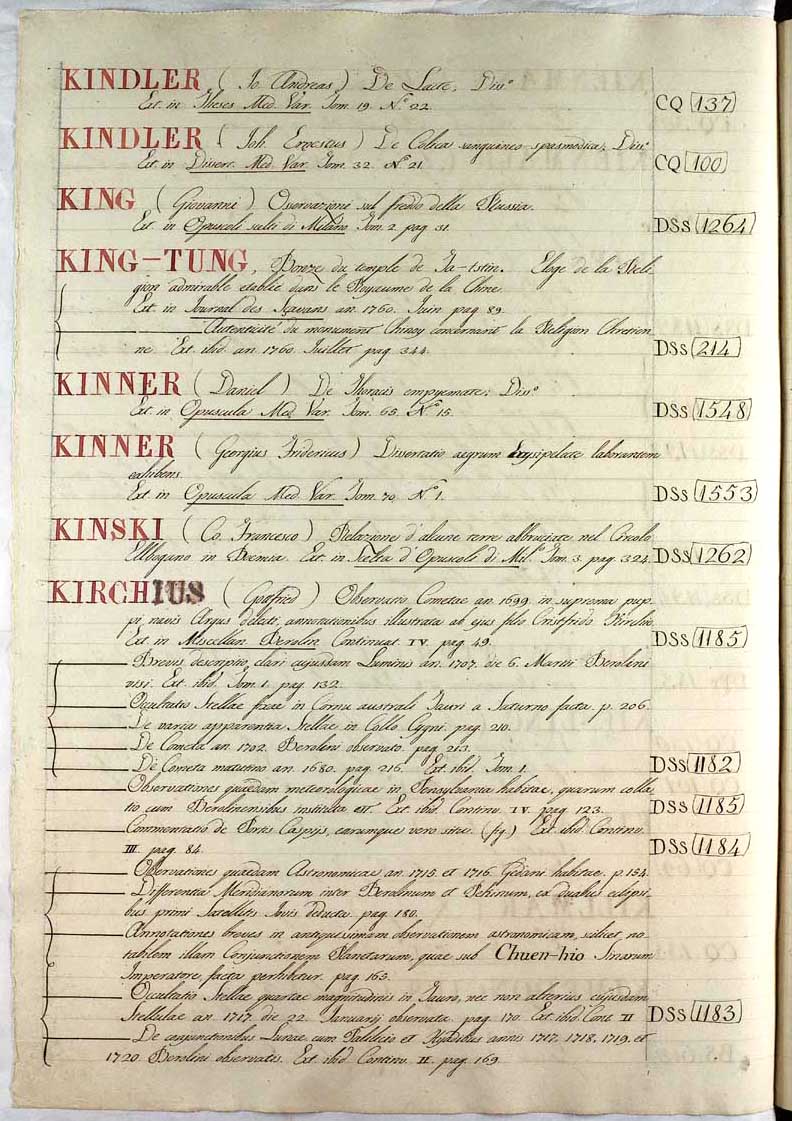 KINDLER (Jo. Andreas) De Lacte, Diss.º
Ext. in Theses Med. Var. Tom. 19. Nº 22. CQ 137
KINDLER (Joh. Ernestus) De Colica sanguineo-spasmodica; Diss.º
Ext. in Dissert. Med. Var. Tom. 32. Nº 21. CQ 100
KING (Giovanni) Osservazioni sul freddo della Russia.
Ext. in Opuscoli scelti di Milano Tom. 2. pag. 31. DSs 1264
KING-TUNG, Bonze du temple de Ta-tstin. Eloge de la Reli-
gion admirable etablie dans le Royaume de la Chine.
Ext. in Journal des Sçavans an. 1760. Juin pag. 89.
Autenticité du monument Chinoy concernant la Religion Chretien-
ne. Ext. ibid. an. 1760. Juillet pag. 344. DSs 214
KINNER (Daniel) De Thoracis empyemate; Diss.º
Ext. in Opuscula Med. Var. Tom. 65. Nº 15. DSs 1548
KINNER (Georgius Fridericus) Dissertatio aegrum Erysipelate laborantem
exhibens.
Ext. in Opuscula Med. Var. Tom. 70. Nº 1. DSs 1553
KINSKI (Co. Francesco) Relazione d'alcune terre abbruciate nel Circolo
Ellbogano in Boemia. Ext. in Scelta d'Opuscoli di Mil.º Tom. 3. pag. 324. DSs 1262
KIRCHIUS (Gotfried) Observatio Cometae an. 1699. in suprema pup-
pi navis Argus delati, annotationibus illustrata ab ejus filio Cristfrido Kirchio
Ext. in Miscellan. Berolin. Continuat. IV. pag. 49. DSs 1185
Brevis descriptio clari cujusdam Luminis an. 1707. die 6. Martii Berolini
visi. Ext. ibid. Tom. 1. pag. 132.
Occultatio Stellae fixae in Cornu australi Tauri a Saturno facta. p. 206.
De varia apparentia Stellae in Collo Cygni. pag. 210.
De Cometa an. 1702. Berolini observato. pag. 213.
De Cometa matutino an. 1680. pag. 216. Ext. ibid. Tom. 1. DSs 1182
Observationes quaedam meteorologicae in Pensylvania habitae, quarum colla-
tio cum Berolinensibus instituta est. Ext. ibid. Continu. IV. pag. 123. DSs 1185
Commentatio de Portis Caspijs, earumque vero situ. (fig.) Ext. ibid. Continu.
III. pag. 84. DSs 1184
Observationes quaedam Astronomicae an. 1715. et 1716. Gedani habitae. p. 154.
Differentia Meridianorum inter Berolinum et Pekinum, ex duabus eclipsi-
bus primi Satellitis Jovis deducta. pag. 180.
Annotationes breves in antiquissimam observationem astronomicam, scilicet no-
tabilem illam Conjunctionem Planetarum, quae sub Chuen-hio Sinarum
Imperatore, facta perhibetur. pag. 163.
Occultatio Stellae quartae magnitudinis in Tauro, nec non alterius cujusdam
Stellulae an. 1717. die 22. Januarij observata. pag. 170. Ext. ibid. Cont. II DSs 1183
De conjunctionibus Lunae cum Palilicio et Hyadibus annis 1717. 1718. 1719. et
1720 Berolini observatis. Ext. ibid. Continu. II. pag. 169.